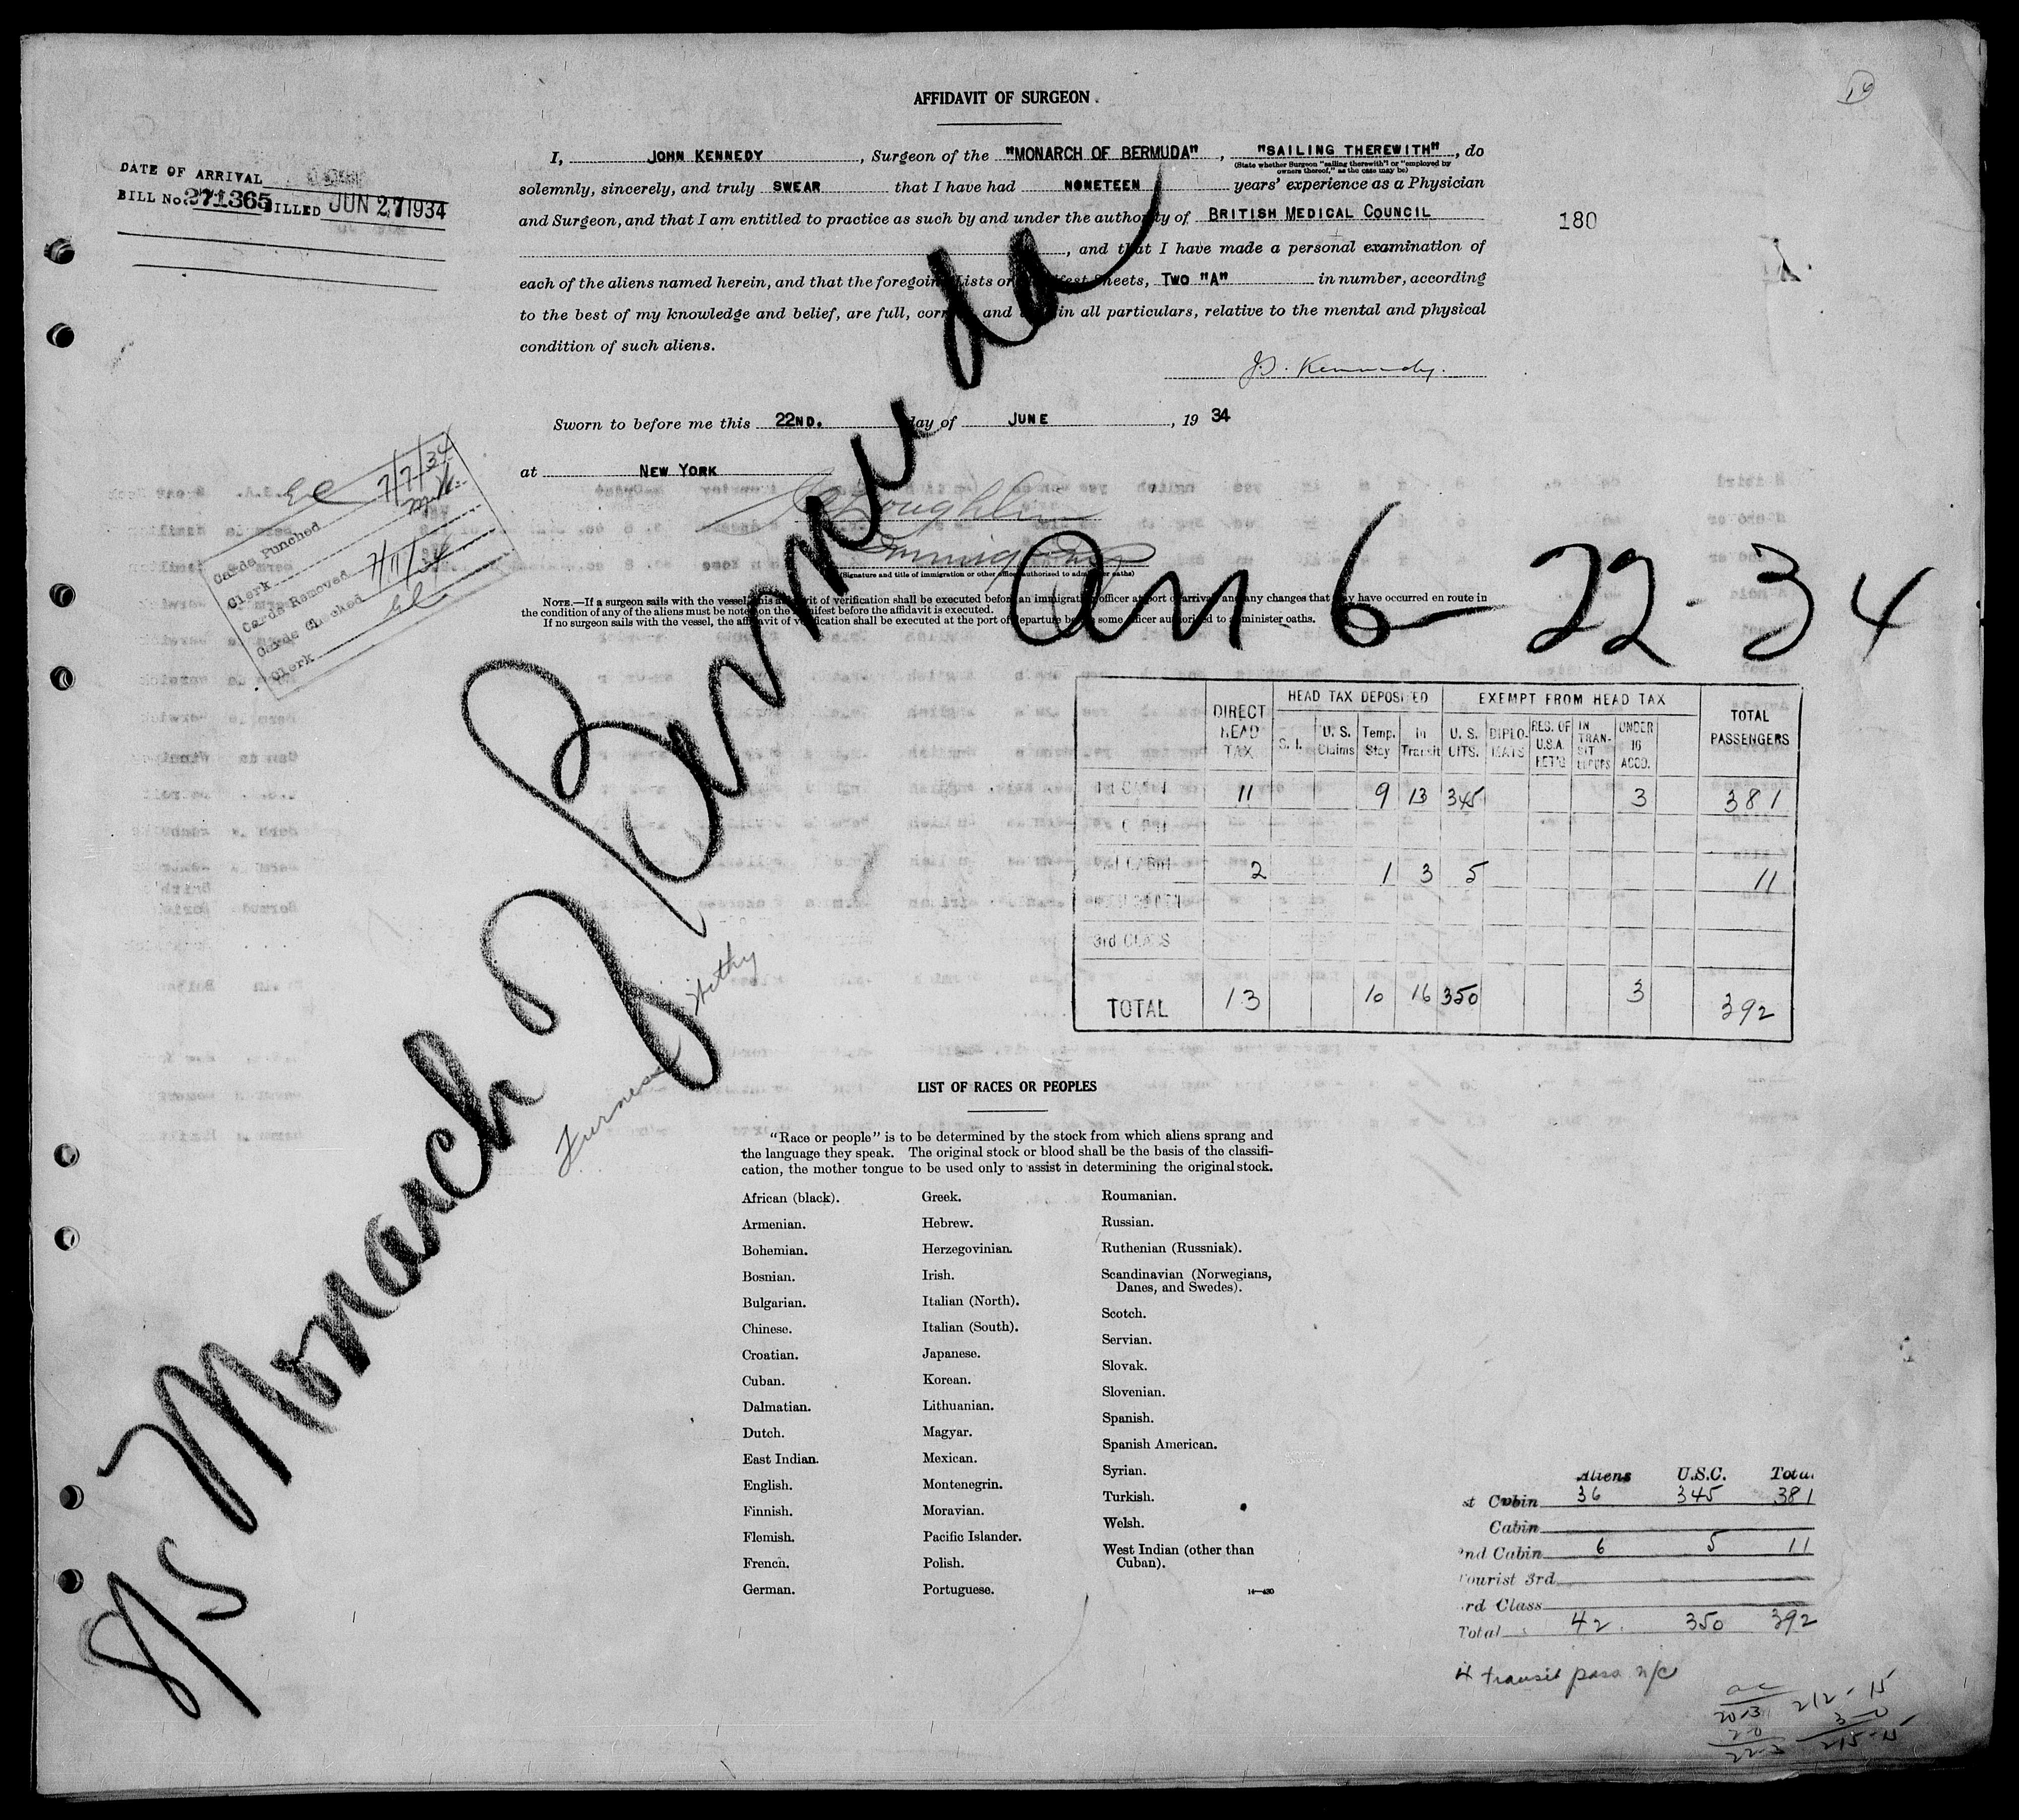 AFFIDAVIT OF SURGEON
DATE OF ARRIVAL
BILL No. 271365 BILLED JUN 27 1934
I, JOHN KENNEDY, Surgeon of the "MONARCH OF BERMUDA", "SAILING THEREWITH", do
(State whether Surgeon "sailing therewith" or "employed by
owners thereof," as the case may be)
solemnly, sincerely, and truly SWEAR that I have had NONETEEN years' experience as a Physician
and Surgeon, and that I am entitled to practice as such by and under the authority of BRITISH MEDICAL COUNCIL
180
, and that I have made a personal examination of
each of the aliens named herein, and that the foregoing Lists or Manifest Sheets, TWO "A" in number, according
to the best of my knowledge and belief, are full, correct, and true in all particulars, relative to the mental and physical
condition of such aliens.
J.D. Kennedy.
Sworn to before me this 22ND. day of JUNE, 19 34
at NEW YORK
Cards Punched 7/7/34
Clerk
Cards Removed
Cards Checked 7/11/34
Clerk
(Signature and title of immigration or other officer authorized to administer oaths)
NOTE.—If a surgeon sails with the vessel, this affidavit of verification shall be executed before an immigration officer at port of arrival, and any changes that may have occurred en route in
the condition of any of the aliens must be noted on the manifest before the affidavit is executed.
If no surgeon sails with the vessel, the affidavit of verification shall be executed at the port of departure before some officer authorized to administer oaths.
S/S Monarch of Bermuda
Arr 6-22-34
Furness Withy
DIRECT HEAD TAX HEAD TAX DEPOSITED EXEMPT FROM HEAD TAX TOTAL PASSENGERS
S. I. U. S. Claims Temp. Stay In Transit U. S. CITS. DIPLO-MATS RES. OF U.S.A. RET'G IN TRAN-SIT UNDER 16 ACCO.
1st CABIN 11 9 13 345 3 381
CABIN
2nd CABIN 2 1 3 5 11
3rd CLASS
TOTAL 13 10 16 350 3 392
LIST OF RACES OR PEOPLES
"Race or people" is to be determined by the stock from which aliens sprang and
the language they speak. The original stock or blood shall be the basis of the classifi-
cation, the mother tongue to be used only to assist in determining the original stock.
African (black).
Armenian.
Bohemian.
Bosnian.
Bulgarian.
Chinese.
Croatian.
Cuban.
Dalmatian.
Dutch.
East Indian.
English.
Finnish.
Flemish.
French.
German.
Greek.
Hebrew.
Herzegovinian.
Irish.
Italian (North).
Italian (South).
Japanese.
Korean.
Lithuanian.
Magyar.
Mexican.
Montenegrin.
Moravian.
Pacific Islander.
Polish.
Portuguese.
Roumanian.
Russian.
Ruthenian (Russniak).
Scandinavian (Norwegians,
Danes, and Swedes).
Scotch.
Servian.
Slovak.
Slovenian.
Spanish.
Spanish American.
Syrian.
Turkish.
Welsh.
West Indian (other than
Cuban).
14—430
Aliens U.S.C. Total
st Cabin 36 345 381
Cabin
2nd Cabin 6 5 11
Tourist 3rd
rd Class
Total 42 350 392
4 transit pass n/c
212-15
3-0
215-15